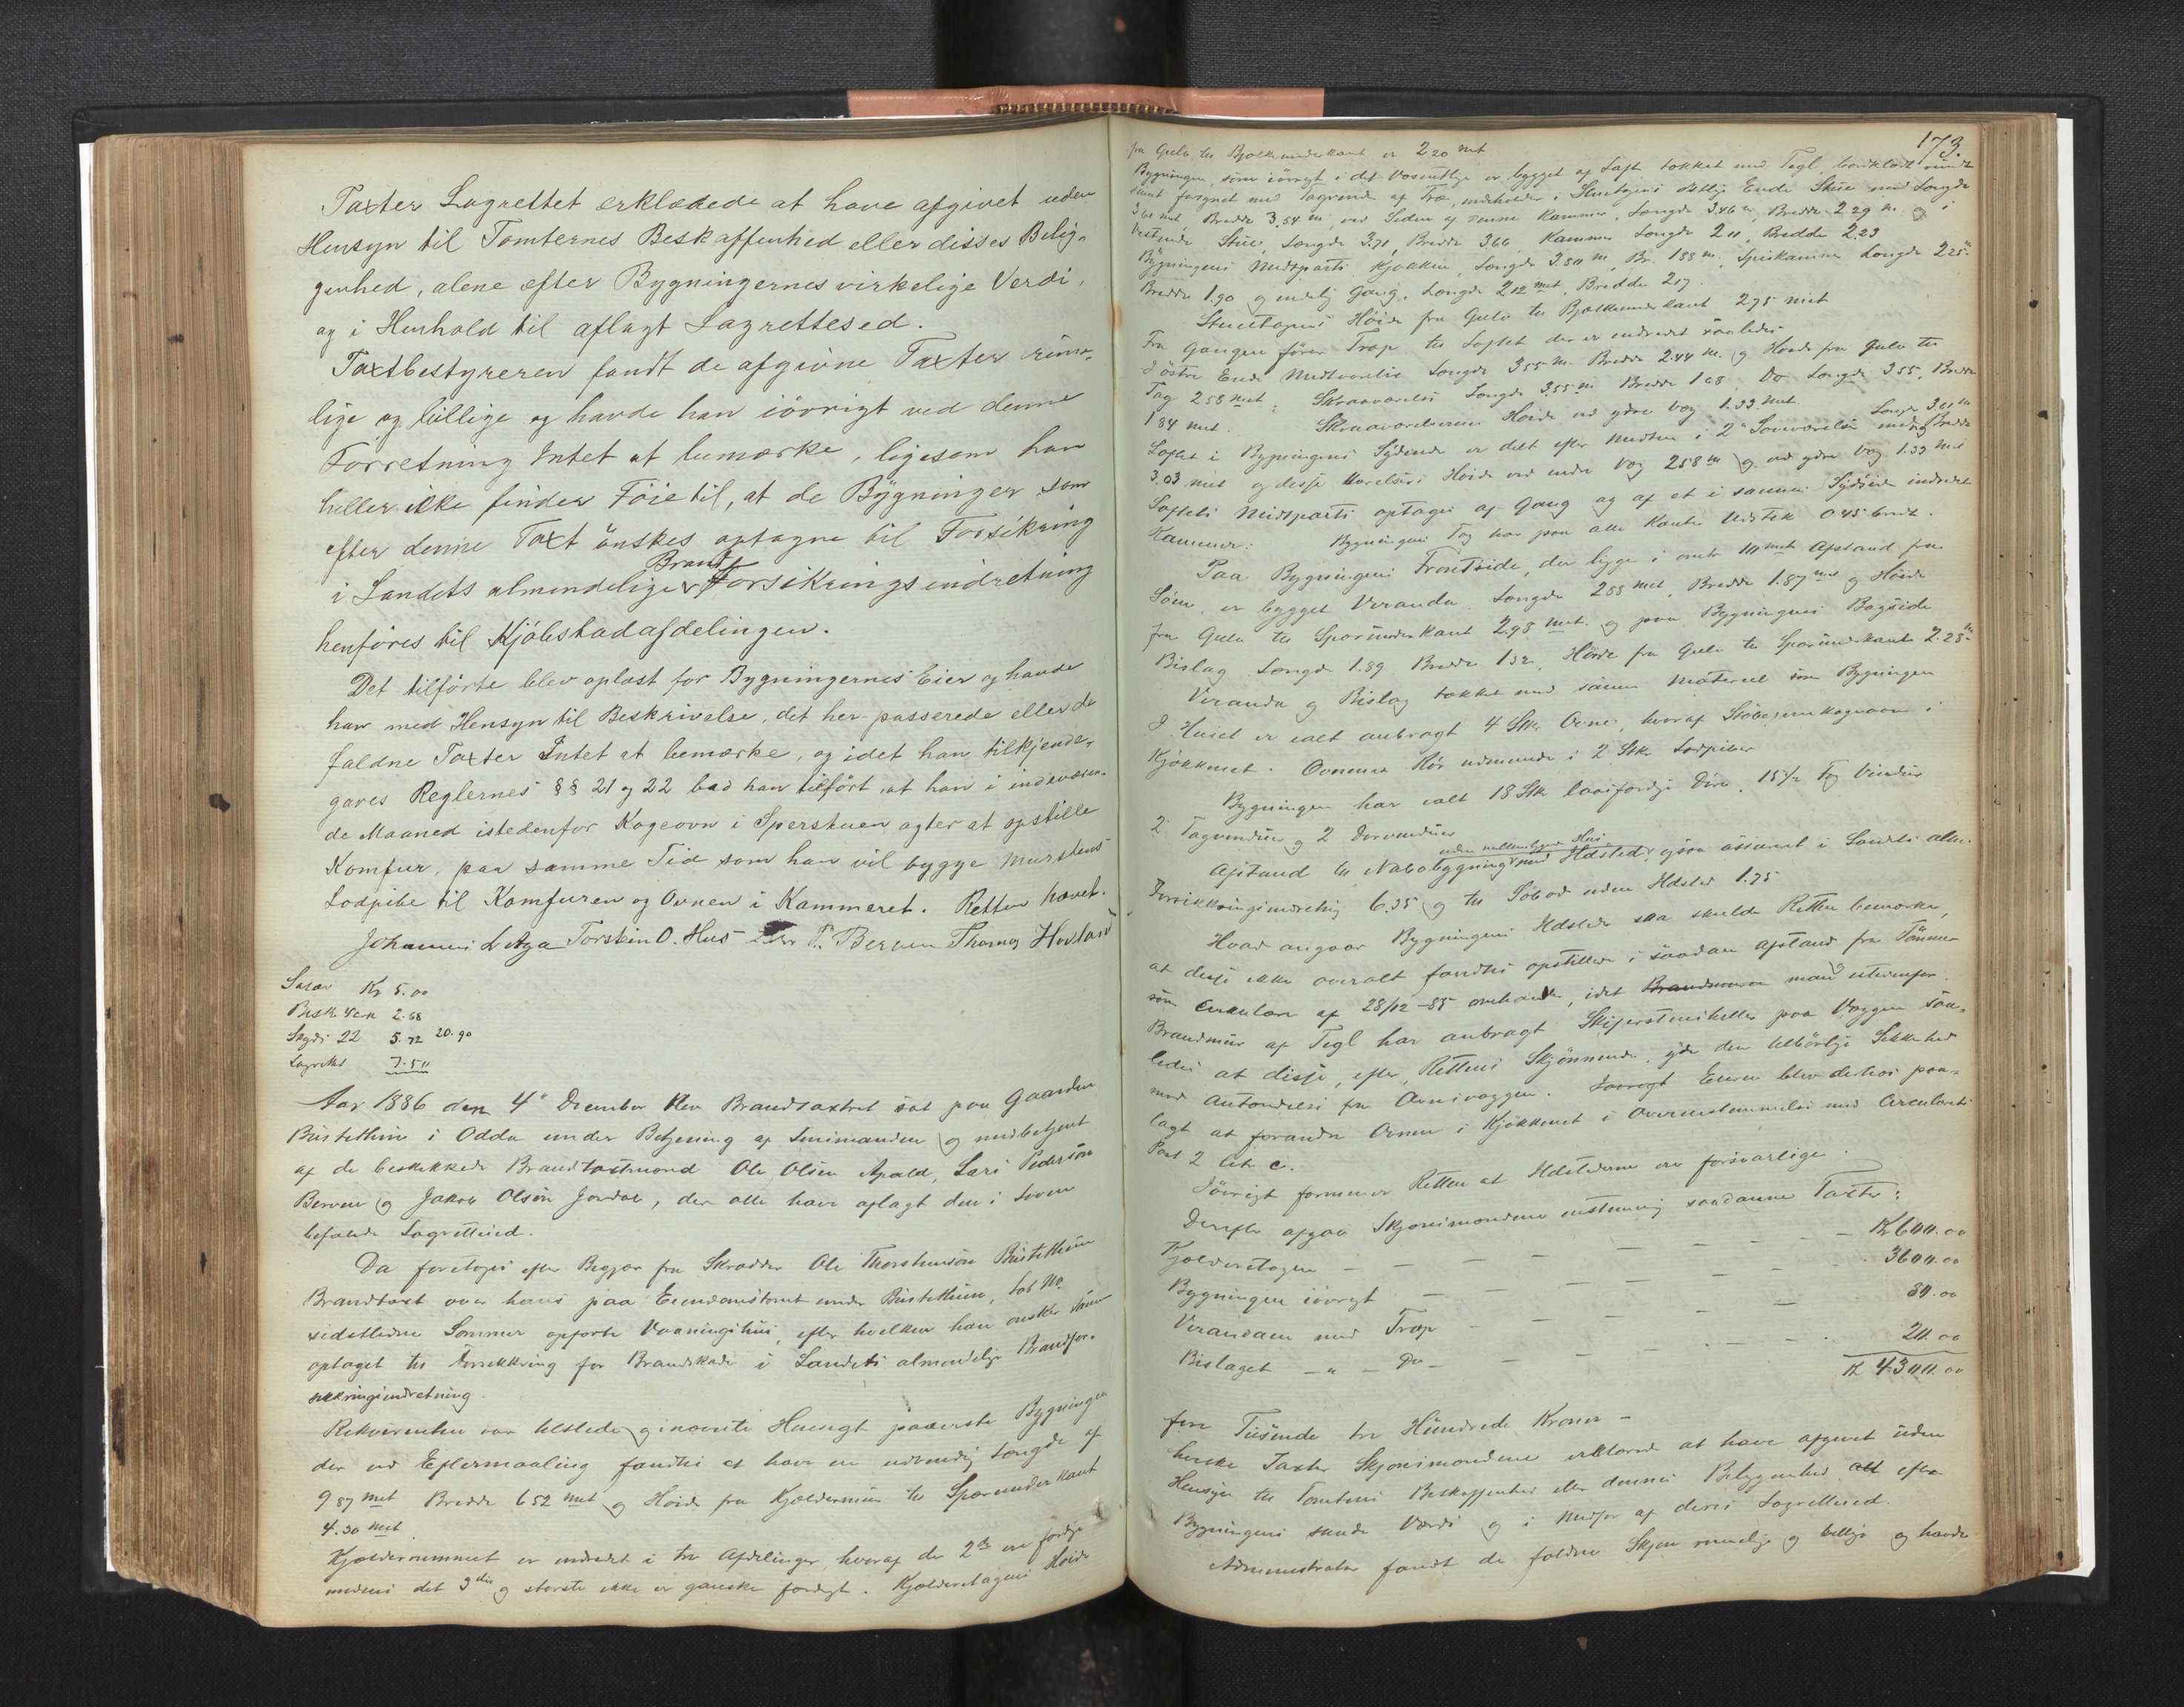 Taxter Lagrettet erklærede at have afgivet uden
Hensyn til Tomternes Beskaffenhed eller disses Belig-
genhed, alene efter Bygningernes virkelige Verdi,
og i Henhold til aflagt Lagrettesed.
Taxtbestyreren fandt de afgivne Taxter rime-
lige og billige og havde han iövrigt ved denne
Forretning Intet at bemærke, ligesom han
heller ikke finder Föie til, at de Bygninger som
efter denne Taxt önskes optagne til Forsikring
i Landets almindelige Brand Forsikringsindretning
henföres til Kjöbstadafdelingen.
Det tilförte blev oplæst for Bygningernes Eier og havde
han med Hensyn til Beskrivelse, det her passerede eller de
faldne Taxter Intet at bemærke, og idet han tilkjende-
gaves Reglernes §§ 21 og 22 bad han tilfört, at han i indeværen-
de Maaned istedenfor Kogeovn i Sperstuen agter at opstille
Komfur, paa samme Tid som han vil bygge Murstens
Lodpibe til Komfuren og Ovnen i Kammeret. Retten hævet.
Johannes L Aga Torstein O. Hus P. Berven Thomas Hovland
Salær Kr 5.00
Besk 2.68
Skyds 22 5.72 20.90
Lagrettet 7.50
Aar 1886 den 4de December blev Brandtaxtret sat paa Gaarden
Bustethun i Odda under Betjening af Lensmanden og medbetjent
af de beskikkede Brandtaxtmænd Ole Olsen Apald, Lars Pederson
Berven og Jakob Olsen Jordal, der alle have aflagt den i Loven
befalede Lagrettesed.
Da foretoges efter Begjær fra Skrædder Ole Thorstensen Bustethun
Brandtaxt over hans paa Eiendomstomt under Bustethun, Löb No
sidstledne Sommer opförte Vaaningshus, efter hvilken han önsker samme
optaget til Forsikkring for Brandskade i Landets almindelige Brandfor-
sikkringsindretning.
Rekvirenten var tilstede og i næsete Huusegt paaviste Bygningen
der ved Eftermaaling fandtes at have en udvendig Længde af
9.87 met Bredde 6.52 met og Höide fra Kjældermuur til Sperunderkant
4.30 met
Kjælderrummet er indredet i tre Afdelinger, hvoraf de 2de ere færdige
medens det 3die og störste ikke er ganske færdigt. Kjælderetagens Höide
173.
fra Gulv til Bjælkeunderkant er 2.20 met
Bygningen, som iövrigt i det Væsentlige er bygget af Laft, tækket med Tegl, bordklædt rundt
samt forsynet med Tagrende af Træ, indeholder i Stuetagens östlige Ende Stue med Længde
3.61 met Bredde 3.54 m, ved Siden af denne Kammer, Længde 3.46 m, Bredde 2.29 m og i
Vestende Stue, Længde 3.71, Bredde 3.66, Kammer Længde 2.11, Bredde 2.23
Bygningens Midtparti Kjökken, Længde 3.80 m, Br. 1.88 m, Spiskammer Længde 2.25
Bredde 1.90 og endelig Gang, Længde 2.12 met Bredde 2.17.
Stuetagens Höide fra Gulv til Bjælkeunderkant 2.75 met
Fra Gangen förer Trap til Loftet der er indredet saaledes
I östre Ende Midtværelse Længde 3.55 m. Bredde 2.44 m. og Höide fra Gulv til
Tag 2.58 met; Skraaværelse Længde 3.55 m Bredde 1.68. Do Længde 3.55, Bredde
1.84 met. Skraaværelsernes Höide ved ydre Væg 1.33 met.
Loftet i Bygningens Sydende er delt efter Midten i 2de Soveværelser med Længde 3.61 m og Bredde
3.03 met og disse Værelsers Höide ved indre Væg 2.58 m og ved ydre Væg 1.33 met
Loftets Midtparti optages af Gang og af et i samme Sydside indredet
Kammer. Bygningens Tag har paa alle Kanter Udstik 0.45 bredt.
Paa Bygningens Frontside, der ligge i omtr 10 met Afstand fra
Söen, er bygget Veranda. Længde 2.88 met, Bredde 1.87 met og Höide
fra Gulv til Sparunderkant 2.98 met. og paa Bygningens Bagside
Bislag Længde 1.89 Bredde 1.32, Höide fra Gulv til Sparunderkant 2.28 m
Veranda og Bislag tækket med samme Materiel som Bygningen
I Huset er ialt anbragt 4 Stk Ovne, hvoraf Stöbejernskogeovn i
Kjökkenet. Ovnenes Rör udmunde i 2 Stk Lodpiber
Bygningen har ialt 18 Stk laasfærdige Döre, 15½ Fag Vinduer
2 Tagvinduer og 2 Dörvinduer
Afstand til Nabobygning uden mellemliggende Hus med Ildsted, ogsaa assureret i Landets alm.
Forsikkringsindretning 6.35 og til Söbod uden Ildsted 1.75
Hvad angaar Bygningens Ildsteder saa skulde Retten bemærke,
at disse ikke overalt fandtes opstillede i saadan Afstand fra Tömmer
som Cirkulære af 28/12-85 omhandler, idet Brandmuren man istedenfor
Brandmur af Tegl har anbragt Skiferstensheller paa Væggen saa-
ledes at disse, efter Rettens Skjönnende, yde den tilbörlige Sikkerhed
mod Antændelse fra Ovnsvæggen. Iövrigt Eieren blev derhos paa-
lagt at forandre Ovnen i Kjökkenet i Overensstemmelse med Circulærets
Post 2 Litr. c.
Iövrigt formener Retten at Ildstederne ere forsvarlige.
Derefter afgav Skjönsmændene enstemmig saadanne Taxter:
Kjælderetagen — — — — — — — Kr 600.00
Bygningen iövrigt — — — — — — 3600.00
Verandaen med Trap — — — — — 80.00
Bislaget — " — Do — — — — 20.00
Kr 4300.00
fire Tusinde tre Hundrede Kroner —
hvilke Taxter Skjönsmændene erklærede at have afgivet uden
Hensyn til Tomtens Beskaffenhed eller dennes Beliggenhed alt efter
Bygningens sande Værdi og i Medför af deres Lagrettesed.
Administrator fandt de faldne Skjön rimelige og billige og havde